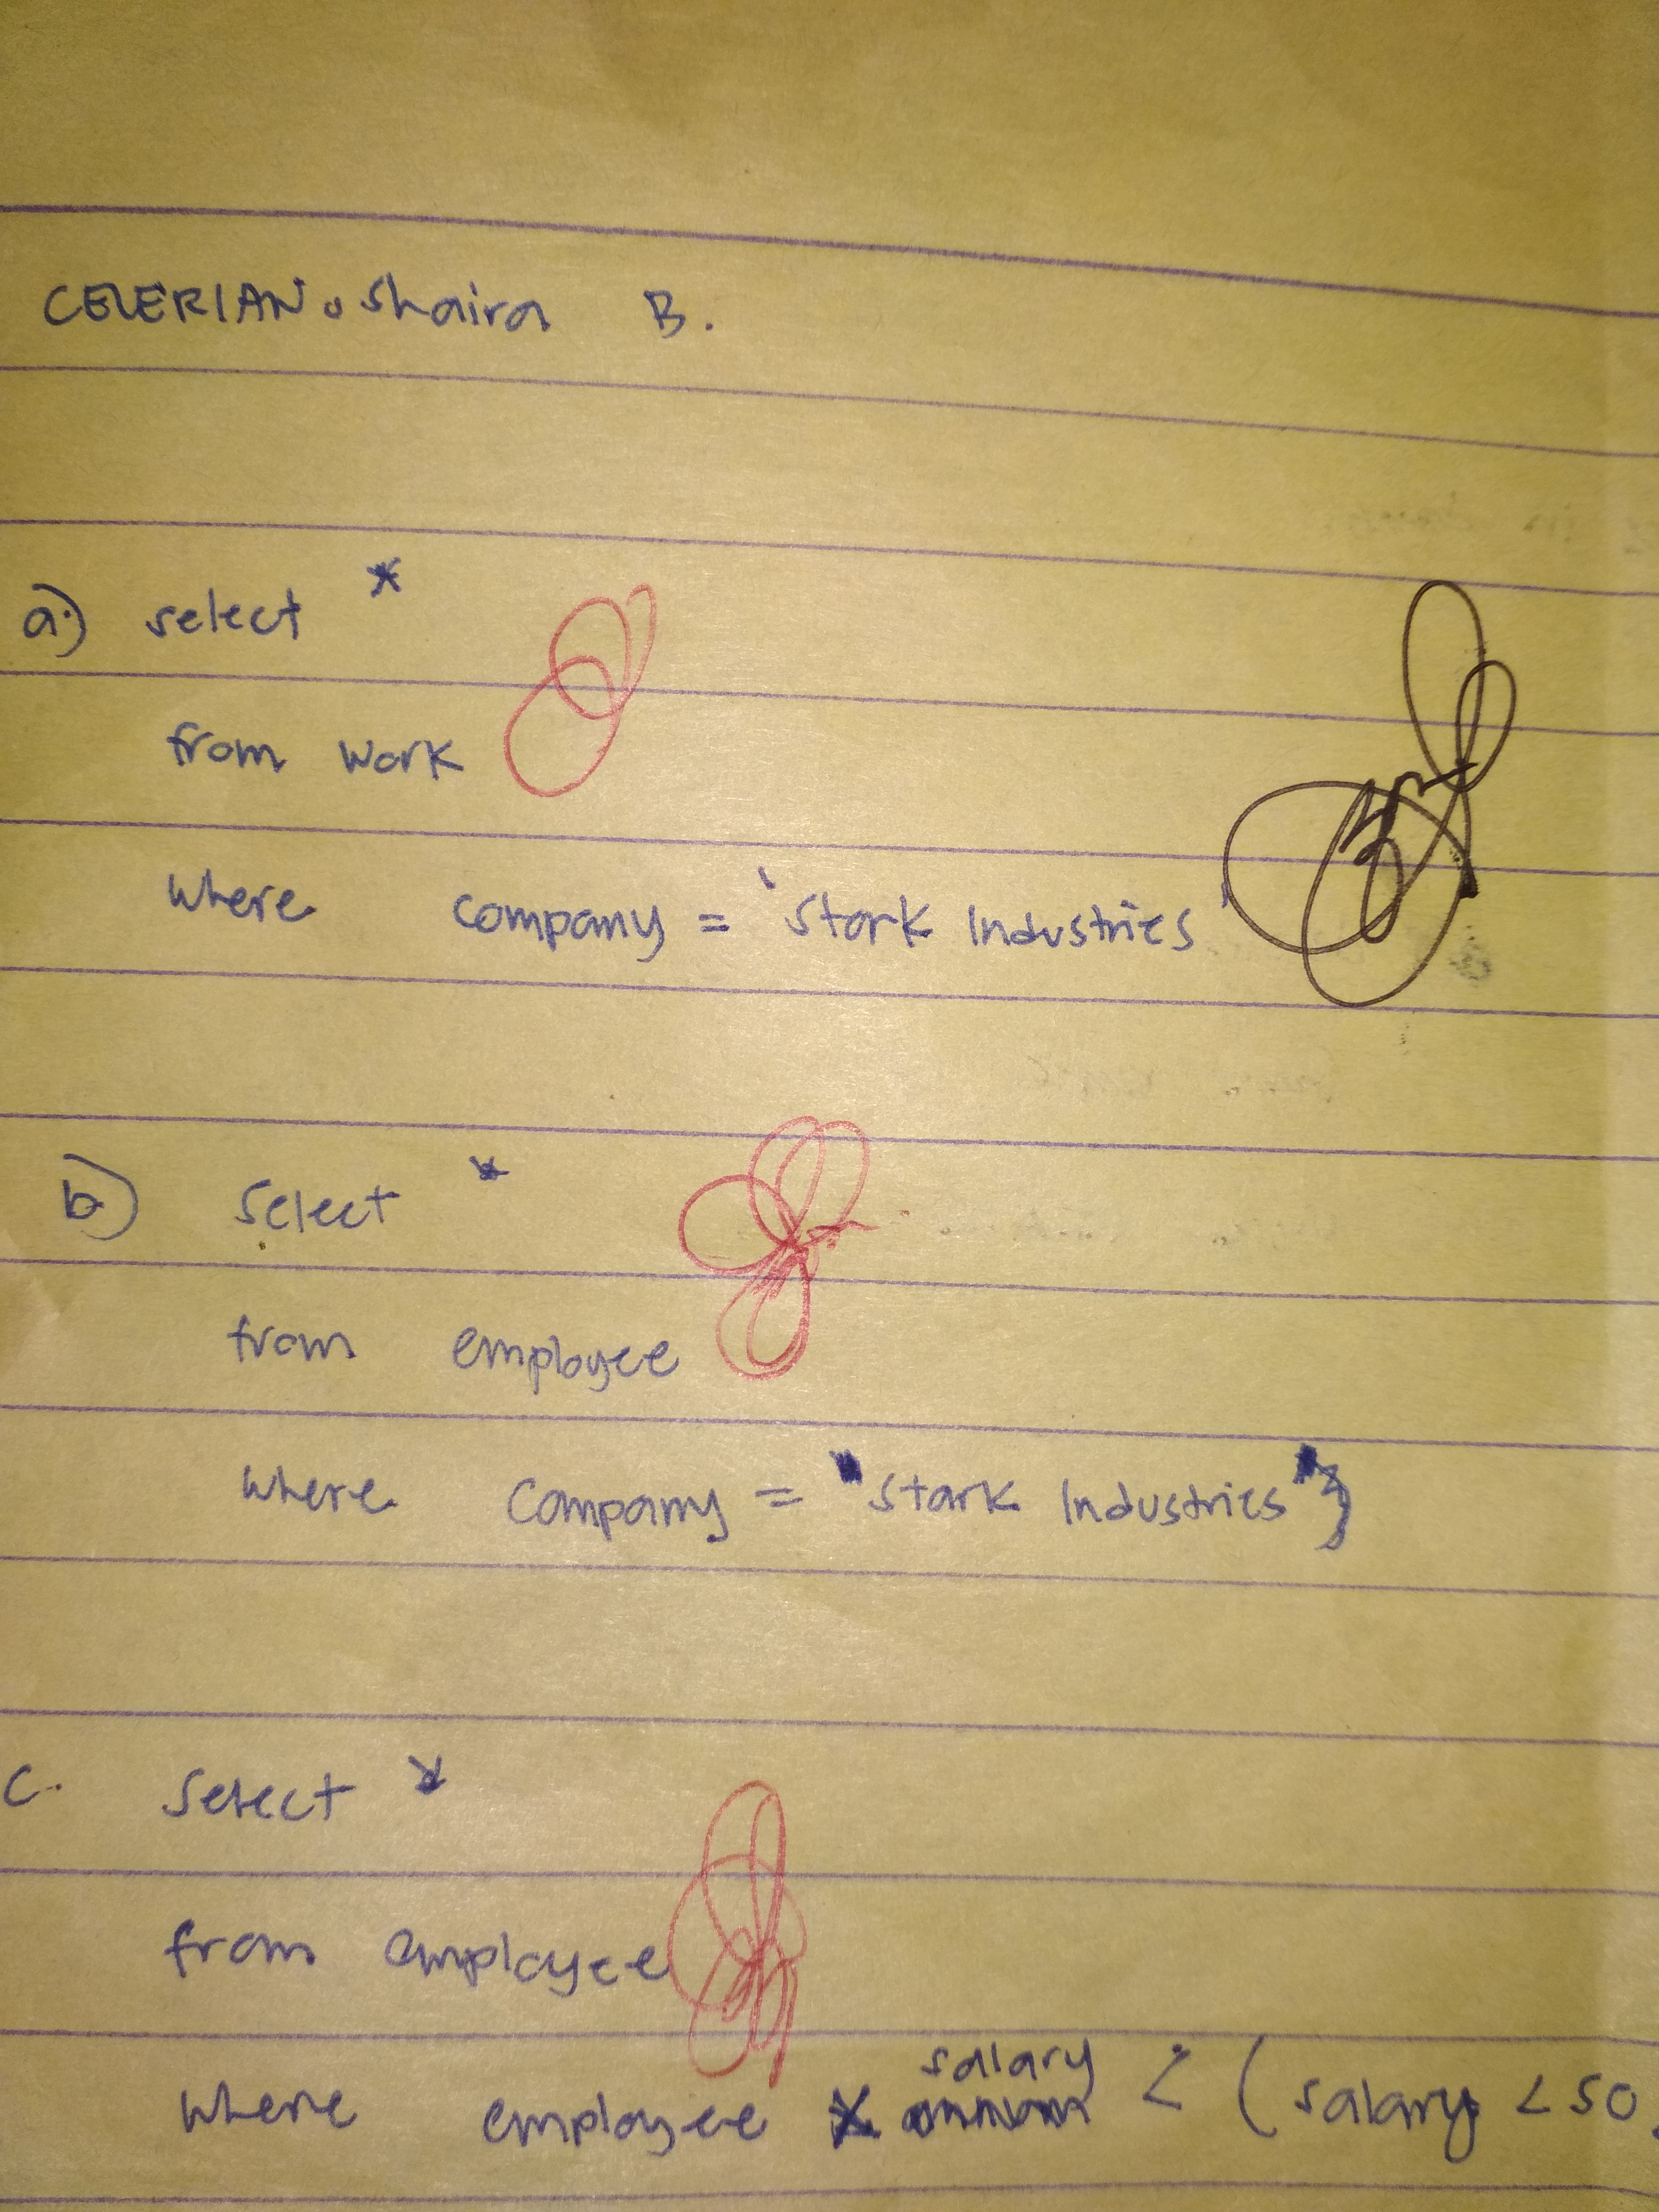 CELERIAN, Shaira B.
a.) select *
from work
where company = 'Stark Industries'
b) Select *
from employee
where Company = "Stark Industries"
c. Select *
from employee
salary
where employee < (salary < 50